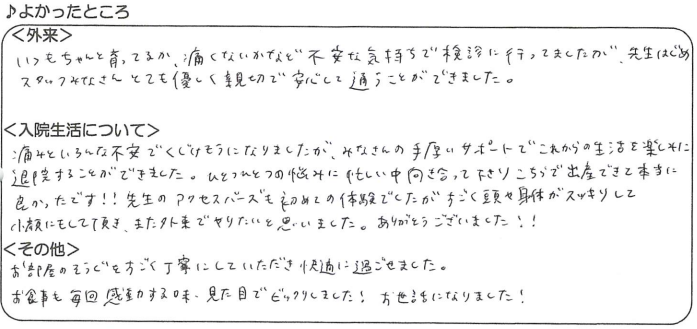 ♪よかったところ
<外来>
いつもちゃんと育ってるか、痛くないかなど不安な気持ちで検診に行ってましたが、先生はじめ
スタッフみなさんとても優しく親切で安心して通うことができました。
<入院生活について>
痛みといろんな不安でくじけそうになりましたが、みなさんの手厚いサポートでこれからの生活を楽しみに
退院することができました。ひとつひとつの悩みに忙しい中向き合って下さりこちらで出産できて本当に
良かったです!!先生のアクセスバーズも初めての体験でしたがすごく頭や身体がスッキリして
小顔にもして頂き、また外来でやりたいと思いました。ありがとうございました!!
<その他>
お部屋のそうじをすごく丁寧にしていただき快適に過ごせました。
お食事も毎回感動する味、見た目でビックリしました!お世話になりました!